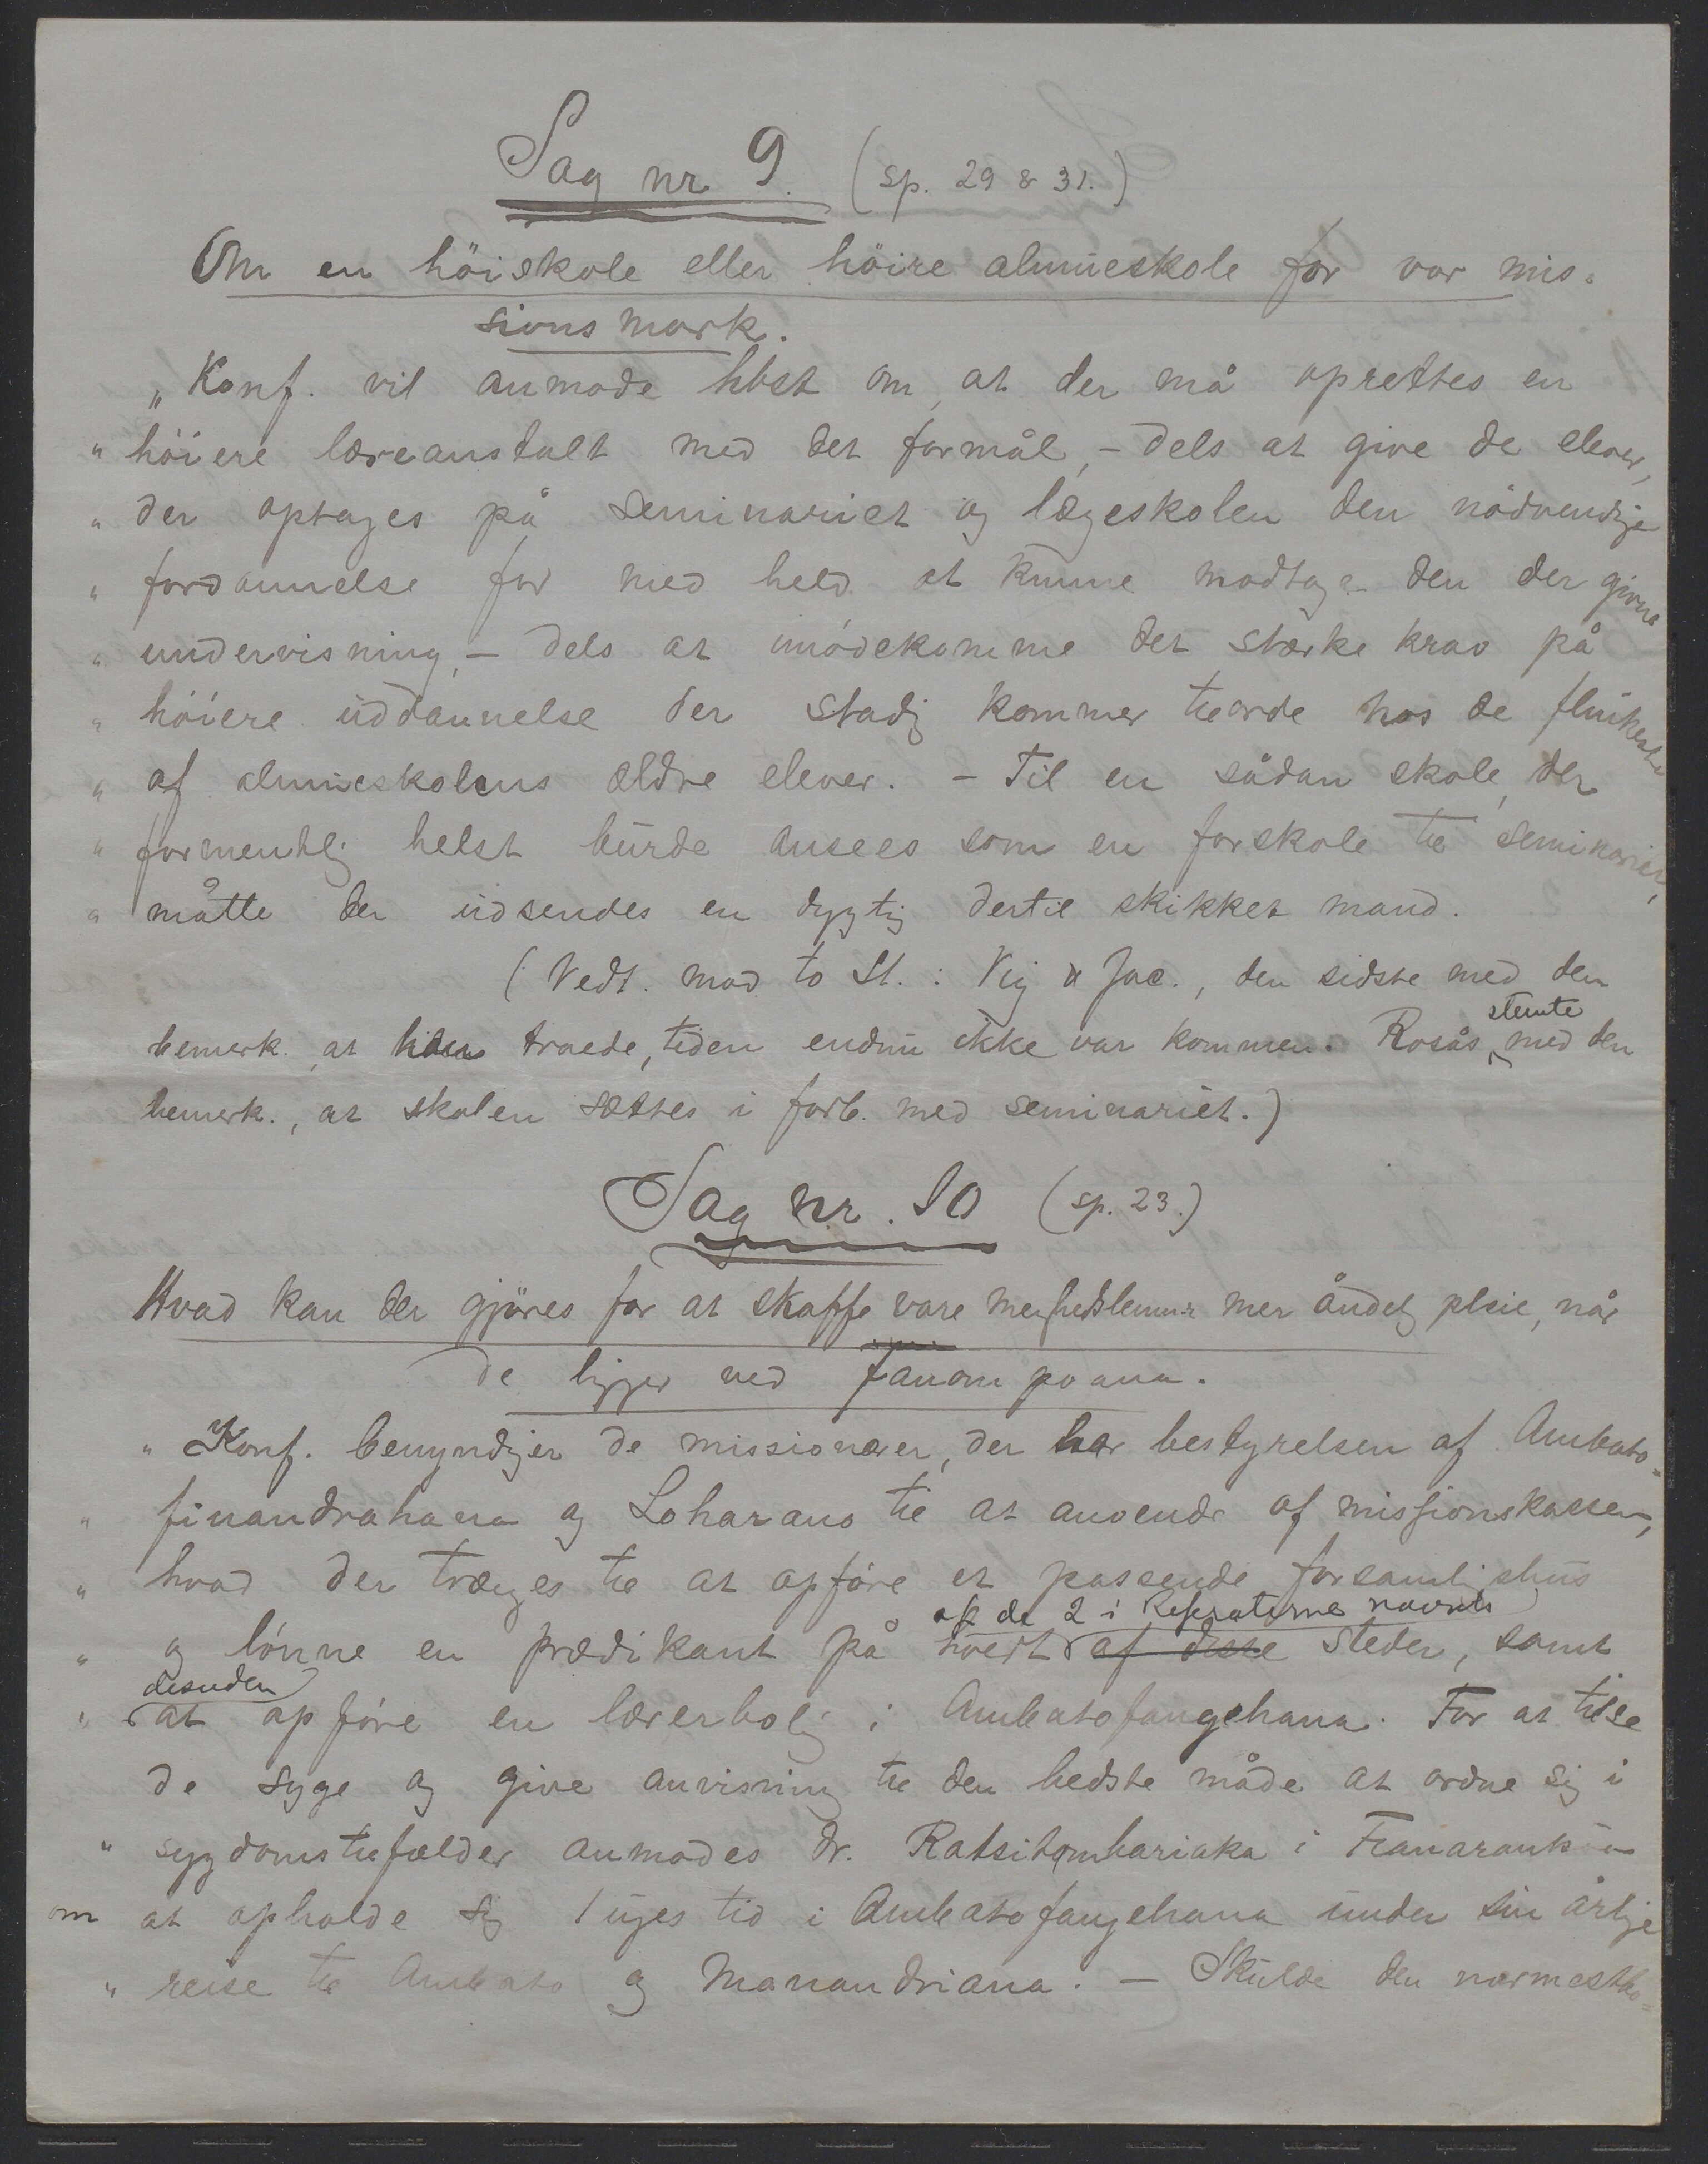 Sag nr 9. (sp. 29 & 31.)
Om en höiskole eller höire almueskole for vor mis-
sionsmark.
„Konf. vil anmode hbst om, at der må oprettes en
" höiere læreanstalt med det formål, – dels at give de elever,
" der optages på seminariet og lægeskolen den nödvendige
" fordannelse for med held at kunne modtage den der givne
" undervisning, – dels at imödekomme det stærke krav på
" höiere uddannelse der stadig kommer tilorde hos de flinkeste
" af almueskolens ældre elever. – Til en sådan skole, der
" formentlig helst burde ansees som en forskole til seminariet,
" måtte der udsendes en dygtig dertil skikket mand.
(Vedt. mod to St.: Vig & Jac., den sidste med den
bemerk., at han troede, tiden endnu ikke var kommen. Rosås stemte med den
bemerk., at skolen sættes i forb. med seminariet.)
Sag nr. 10 (sp. 23.)
Hvad kan der gjöres for at skaffe vore menighedslemmer mer åndelig pleie, når
de ligger ved fanompoana.
" Konf. bemyndiger de missionærer, der har bestyrelsen af Ambato-
" finandrahana og Loharano til at anvende af missionskassen,
" hvad der trænges til at opföre et passende forsamlingshus
" og lönne en prædikant på hvert af de 2 i Referaterne nævnte af disse steder, samt
" desuden at opföre en lærerbolig i Ambatofangehana. For at tilse
de syge og give anvisning til den bedste måde at ordne sig i
" sygdomstilfælder anmodes dr. Ratsitombariaka i Fianarantsoa
om at opholde sig 1 uges tid i Ambatofangehana under sin årlige
" reise til Ambato og Manandriana. – Skulde den nærmestbo-